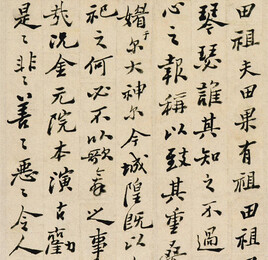 田祖夫田果有祖田祖
琴瑟誰其知之不過
心之報稱以鼓其重
于尔大神尔今城隍既以
祀之何必不以歌舞之事
哉况金元院本演古勸
是〻非〻善〻惡〻令人